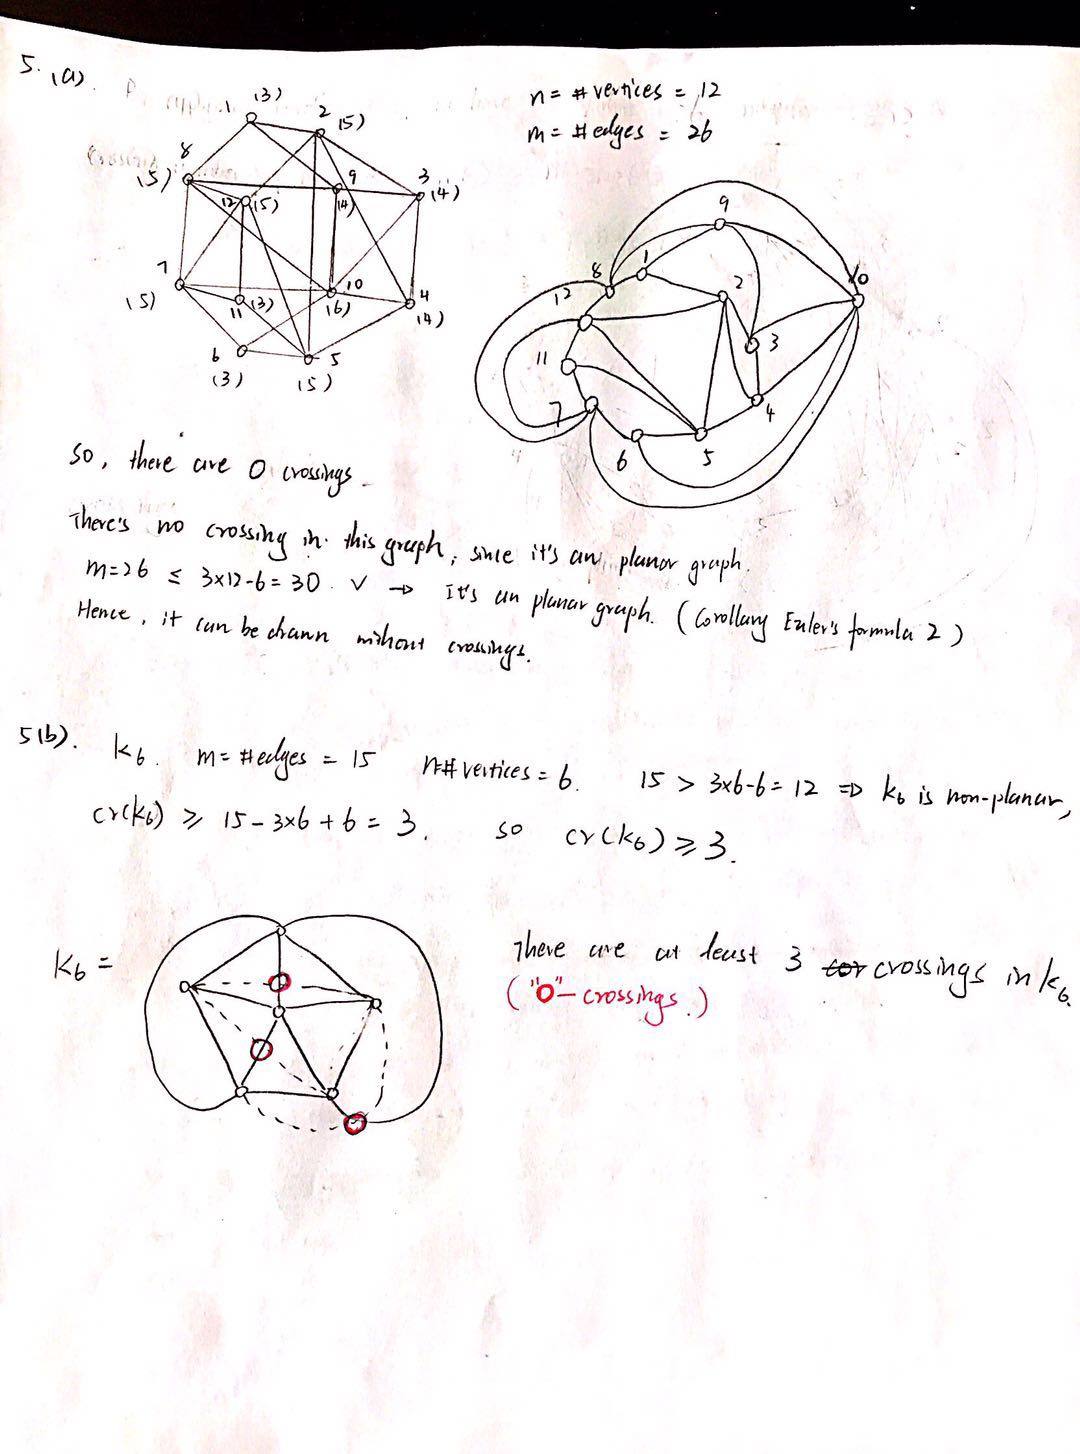 5. (a).
n = # vertices = 12
m = # edges = 26
1 (3)
2 (5)
8 (5)
9 (4)
3 (4)
12 (5)
7 (5)
11 (3)
10 (6)
4 (4)
6 (3)
5 (5)
9
8
1
10
12
2
11
3
7
4
6
5
So, there are 0 crossings.
There's no crossing in this graph, since it's an planar graph.
m=26 ≤ 3×12-6=30. ✓ → It's an planar graph. (Corollary Euler's formula 2)
Hence, it can be drawn without crossings.
5(b). K6. m= #edges = 15 n=# vertices = 6. 15 > 3×6-6=12 ⇒ K6 is non-planar,
cr(K6) ≥ 15-3×6+6=3. so cr(K6) ≥ 3.
K6 =
There are at least 3 crossings in K6.
("O"- crossings.)